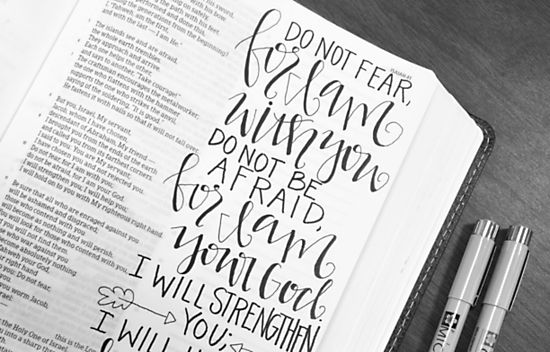 with his sword,
with his bow.
on safely,
performed and done this,
the generations from the beginning?
"I, Yahweh, am the first,
and with the last—I am He."
The islands see and are afraid,
the whole earth trembles.
They approach and arrive.
Each one helps the other,
and says to another, "Take courage!"
The craftsman encourages the metalworker;
the one who flattens with the hammer
saying of the soldering, "It is good."
He fastens it with nails so that it will not fall over.
But you, Israel, My servant,
Jacob, whom I have chosen,
descendant of Abraham, My friend—
I brought you from the ends of the earth
and called you from its farthest corners.
I said to you: You are My servant;
I have chosen you and not rejected you.
Do not fear, for I am with you;
do not be afraid, for I am your God.
I will strengthen you; I will help you;
I will hold on to you with My righteous right hand.
Be sure that all who are enraged against you
will be ashamed and disgraced;
those who contend with you
will become as nothing and will perish.
You will look for those who contend with you,
you will not find them.
who war against you
become absolutely nothing.
Yahweh your God,
right hand
you: Do not fear,
you worm Jacob,
Israel:
the Holy One of Israel.
you into a sharp
this is the Lord
ISAIAH 41
DO NOT FEAR,
for I am
with you
DO NOT BE
AFRAID,
for I am
your God.
I WILL STRENGTHEN
YOU;
I WILL
MICRON